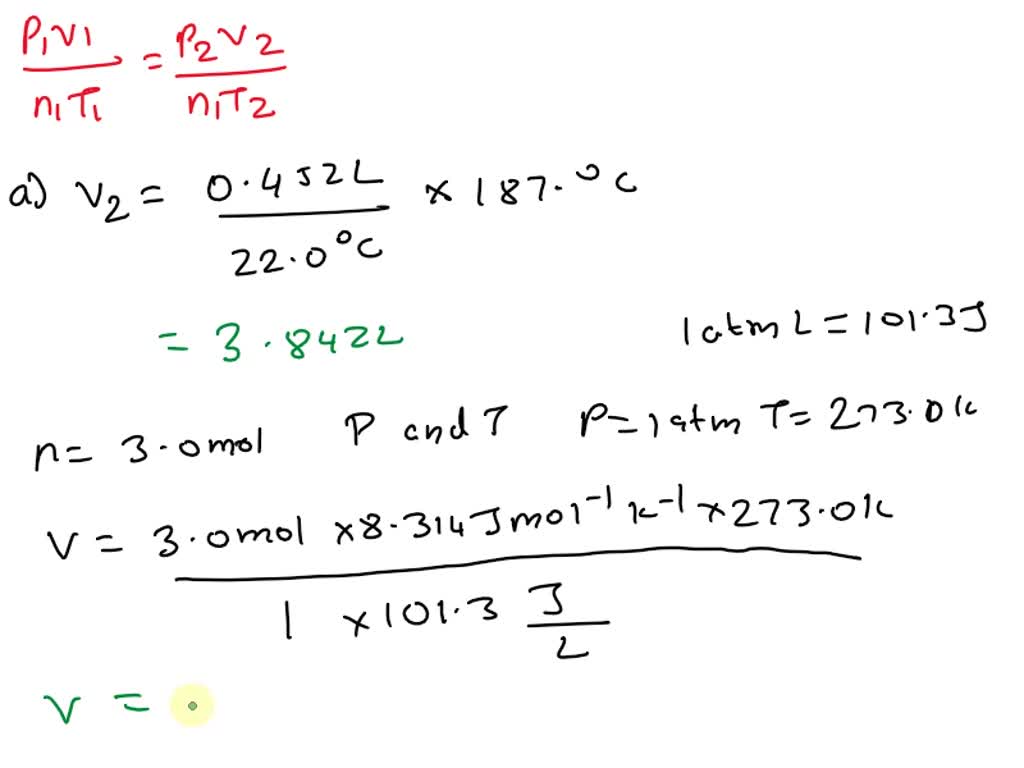 P₁V₁/n₁T₁ = P₂V₂/n₁T₂
a) V₂ = 0.452L/22.0°C × 187.°C
= 3.842L
1 atm L = 101.3J
n = 3.0mol P and T P = 1 atm T = 273.0K
V = 3.0mol × 8.314 J mol⁻¹ K⁻¹ × 273.0K / 1 × 101.3 J/L
V =